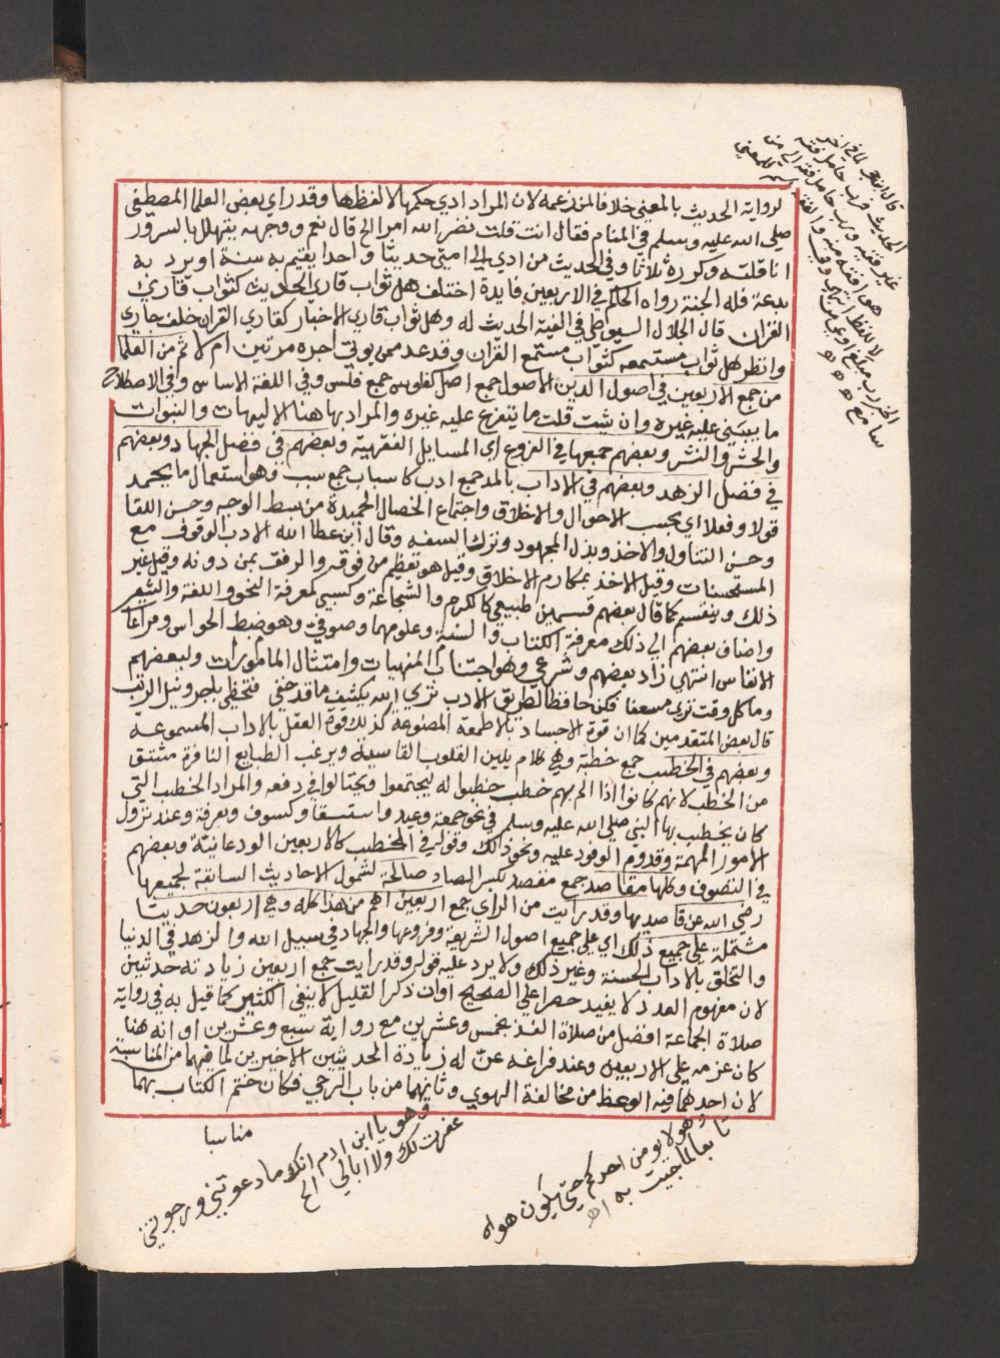 لرواية الحديث بالمعني خلافا لمن زعمه لان المراد ادي حكمها لا لفظها وقد راي بعض العلما المصطفي
صلي الله عليه وسلم في المنام فقال انت قلت نضر الله امرا الخ قال نعم ووجهه يتهلل بالسرور
انا قلته وكرره ثلاثا وفي الحديث من ادي الي امتي حديثا واحدا يقيم به سنة او يرد به
بدعة فله الجنة رواه الحاكم في الاربعين فايدة اختلف هل ثواب قاري الحديث كثواب قاري
القران قال الجلال السيوطي في الفية الحديث له وهل ثواب قاري الاخبار كقاري القران خلف جاري
وانظر هل ثواب مستمعه كثواب مستمع القران وقد عد ممن يوتي اجره مرتين ام لا ثم من العلما
من جمع الاربعين في اصول الدين الاصول جمع اصل كفلوس جمع فلس وفي اللغة الاساس وفي الاصطلاح
ما يبتني عليه غيره وان شيت قلت ما يتفرع عليه غيره والمراد بها هنا الاليهات والنبوات
والحشر والنشر وبعضهم جمعها في الفروع اي المسايل الفقهية وبعضهم في فضل الجهاد وبعضهم
في فضل الزهد وبعضهم في الاداب بالمد جمع ادب كاسباب جمع سبب وهو استعمال ما يحمد
قولا وفعلا اي بحسب الاحوال والاخلاق واجتماع الخصال الحميدة من بسط الوجه وحسن اللقا
وحسن التناول والاخذ وبذل المجهود وترك السفه وقال ابن عطا الله الادب الوقوف مع
المستحسنات وقيل الاخذ بمكارم الاخلاق وقيل هو تعظيم من فوقه والرفق بمن دونه وقيل غير
ذلك وينقسم كما قال بعضهم قسمين طبيعي كالكرم والشجاعة وكسبي كمعرفة النحو واللغة والشعر
واضاف بعضهم الي ذلك معرفة الكتاب والسنة وعلومهما وصوفي وهو ضبط الحواس ومراعاة
الانفاس انتهي زاد بعضهم وشرعي وهو اجتناب المنهيات وامتثال المامورات ولبعضهم
وما كل وقت تري مسعفا فكن حافظا لطريق الادب تري الله يكشف ما قد خفي فتحظي باجر ونيل الرتب
قال بعض المتقدمين كما ان قوة الاجساد بالاطعمة المصنوعة كذلك قوة العقل بالاداب المسموعة
وبعضهم في الخطب جمع خطبة وهي كلام يلين القلوب القاسية ويرغب الطبايع النافرة مشتق
من الخطب لانهم كانوا اذا الم بهم خطب خطبوا له ليجتمعوا ويحتالوا في دفعه والمراد الخطب التي
كان يخطب بها النبي صلي الله عليه وسلم في نحو جمعة وعيد واستسقا وكسوف وبعرفة وعند نزول
الامور المهمة وقدوم الوفود عليه ونحو ذلك وقوله في الخطب كالاربعين الودعانية وبعضهم
في التصوف وكلها مقاصد جمع مقصد بكسر الصاد صالحة لشمول الاحاديث السابقة لجميعها
رضي الله عن قاصديها وقد رايت من الراي جمع اربعين اهم من هذا كله وهي اربعون حديثا
مشتملة علي جميع ذلك اي علي جميع اصول الشريعة وفروعها والجهاد في سبيل الله والزهد في الدنيا
والتخلق بالاداب الحسنة وغير ذلك ولا يرد عليه قوله وقد رايت جمع اربعين زيادته حديثين
لان مفهوم العدد لا يفيد حصرا علي الصحيح او ان ذكر القليل لا ينفي الكثير كما قيل به في رواية
صلاة الجماعة افضل من صلاة الفذ بخمس وعشرين مع رواية سبع وعشرين او انه هنا
كان عزمه علي الاربعين وعند فراغه عن له زيادة الحديثين الاخيرين لما فيهما من المناسبة
لان احدهما فيه الوعظ من مخالفة الهوي وثانيهما من باب الرجي فكان ختم الكتاب بهما
مناسبا
وهو لا يومن احدكم حتي يكون هواه
تابعا لما جيت به اه
وهو يا ابن ادم انك ما دعوتني ورجوتني
غفرت لك ولا ابالي الخ
غير فقيه ورب حامل فقه الي من
هو افقه منه
سامع